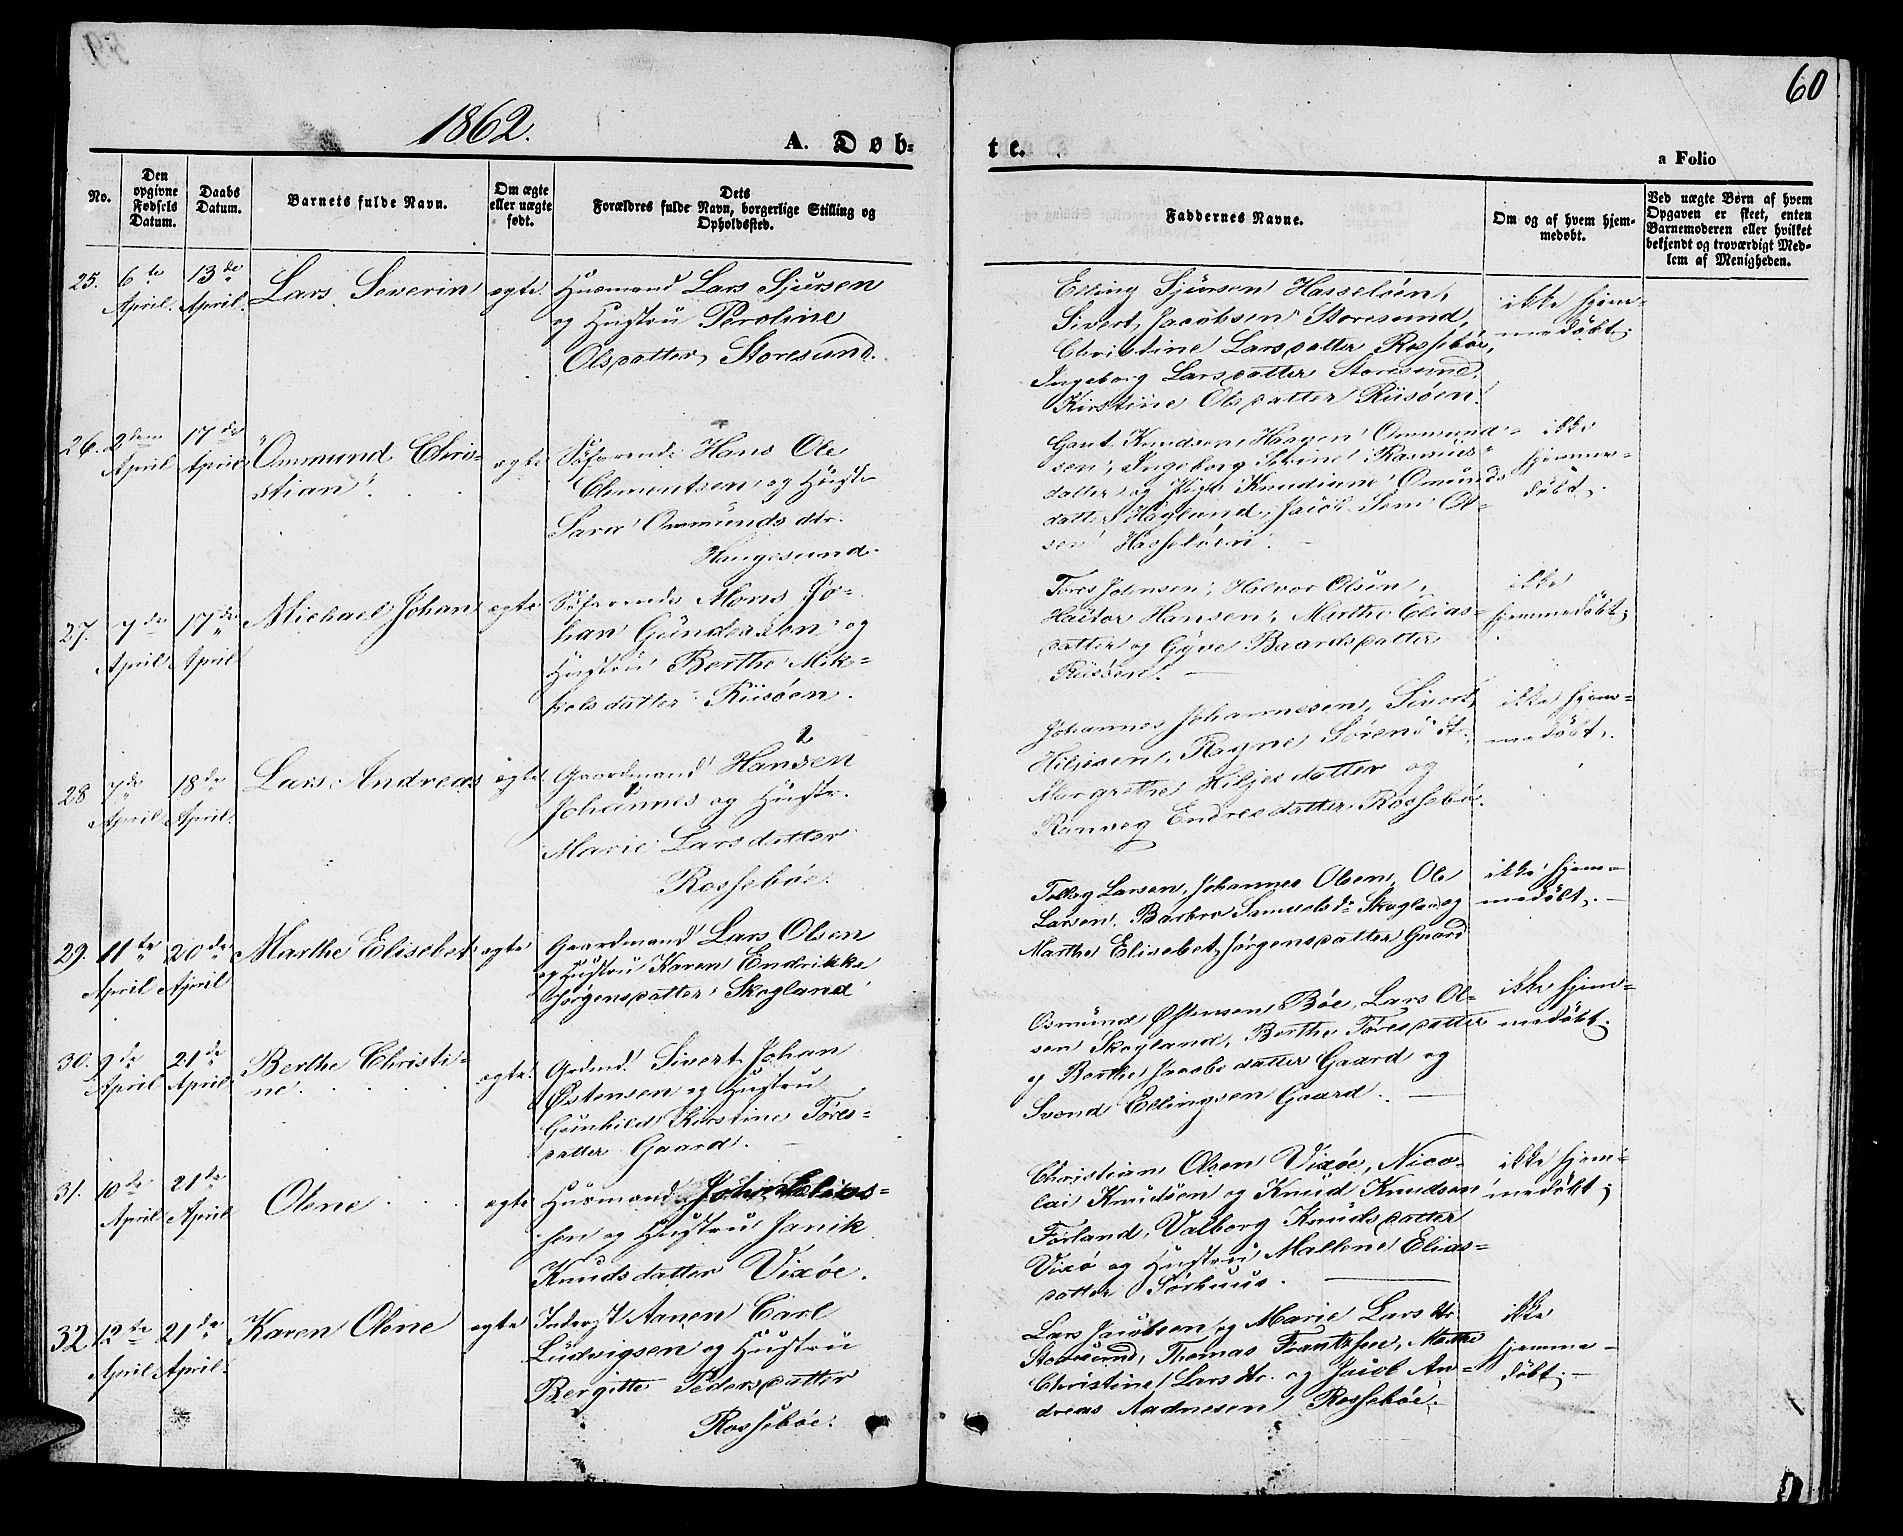 60
1862.
A. Døb-
te.
a Folio
No.
Den opgivne Fødsels Datum.
Daabs Datum.
Barnets fulde Navn.
Om ægte eller uægte født.
Dets Forældres fulde Navn, borgerlige Stilling og Opholdssted.
Faddernes Navne.
Om og af hvem hjemmedøbt.
Ved uægte Børn af hvem Opgaven er skeet, enten Barnemoderen eller hvilket bekjendt og troværdigt Medlem af Menigheden.
25. 6te April. 13de April. Lars Severin ægte.
Husmand Lars Sjursen
og Hustru Peroline
Olsdatter Storesund.
Elling Sjursen Hasseløen,
Sivert Jacobsen Storesund,
Christine Larsdatter Rossebøe,
Ingeborg Larsdatter Storesund,
Kirstine Olsdatter Riisøen.
ikke hjem-
medøbt.
26. 2den April 17de April Ommund Chri-
stian. ægte
Søfarende Hans Ole
Clementsen og Hustr
Sara Ommunds dtr.
Haugesund.
Gaut Knudsen, Haagen Ommund-
sen, Ingeborg Serine Rasmus-
datter og Pige Knudiane Omunds
datter Hagland, Jacob Ol-
sen Hasseløen.
ikke
hjemme-
døbt.
27. 7de April. 17de April Michael Johan ægte
Søfarende Mons Jo-
han Gunderson og
Hustru Berthe Mik-
kelsdatter Riisøen.
Tores Johnsen, Halvor Olsen,
Hansen, Marthe Elias-
datter og Gyve Baardsdatter
Riisøen.
ikke
hjemmedøbt.
28 7de April 18de April. Lars Andreas ægte
Gaardmand 2 Hansen
Johannes og Hustr.
Marie Larsdatter
Rossebøe.
Johannes Johannesen, Sivert
Hiljesen, Ragne Sørens dtr,
Margrethe Hiljesdatter og
Ranveg Endresdatter Rossebøe.
ikke hjem-
medøbt.
29. 11te April 20de April Marthe Elisebet ægte
Gaardmand Lars Olsen
og Hustru Karen Endrikke
Jørgensdatter Skogland
Larsen, Johannes Olsen, Ole
Larsen, Barbro Samuelsd. Skogland og
Marthe Elisebet Jørgensdatter Gaard
ikke hjem-
medøbt.
30. 9de April 21de April Berthe Christi-
ne. ægte.
Grdmd. Sivert Johan
Østensen og Hustru
Gunhild Kirstine Tores-
datter Gaard.
Osmund Østensen Bøe, Lars Ol-
sen Skogland, Berthe Toresdatter
og Berthe Jacobsdatter Gaard og
Svend Ellingsen Gaard.
ikke hjem-
medøbt.
31. 10de April 21de April Olene ægte
Husmand John Elias-
sen og Hustru Janik
Knudsdatter Vixøe.
Christian Olsen Vixøe, Nico-
lai Knudsen og Knud Knudsen
Førland, Valborg Knudsdatter
Vixø og Hustru Mallene Elias-
datter Sørhuus.
ikke hjem-
medøbt.
32 12te April 21de April. Karen Olene ægte
Inderst Aanen Carl
Ludvigsen og Hustru
Bergitte Pedersdatter
Rossebøe.
Lars Jacobsen og Marie Lars dtr
Storesund, Thomas Frantssen, Marthe
Christine Lars dtr. og Jacob An-
dreas Aadnesen Rossebøe.
ikke
hjemme-
døbt.